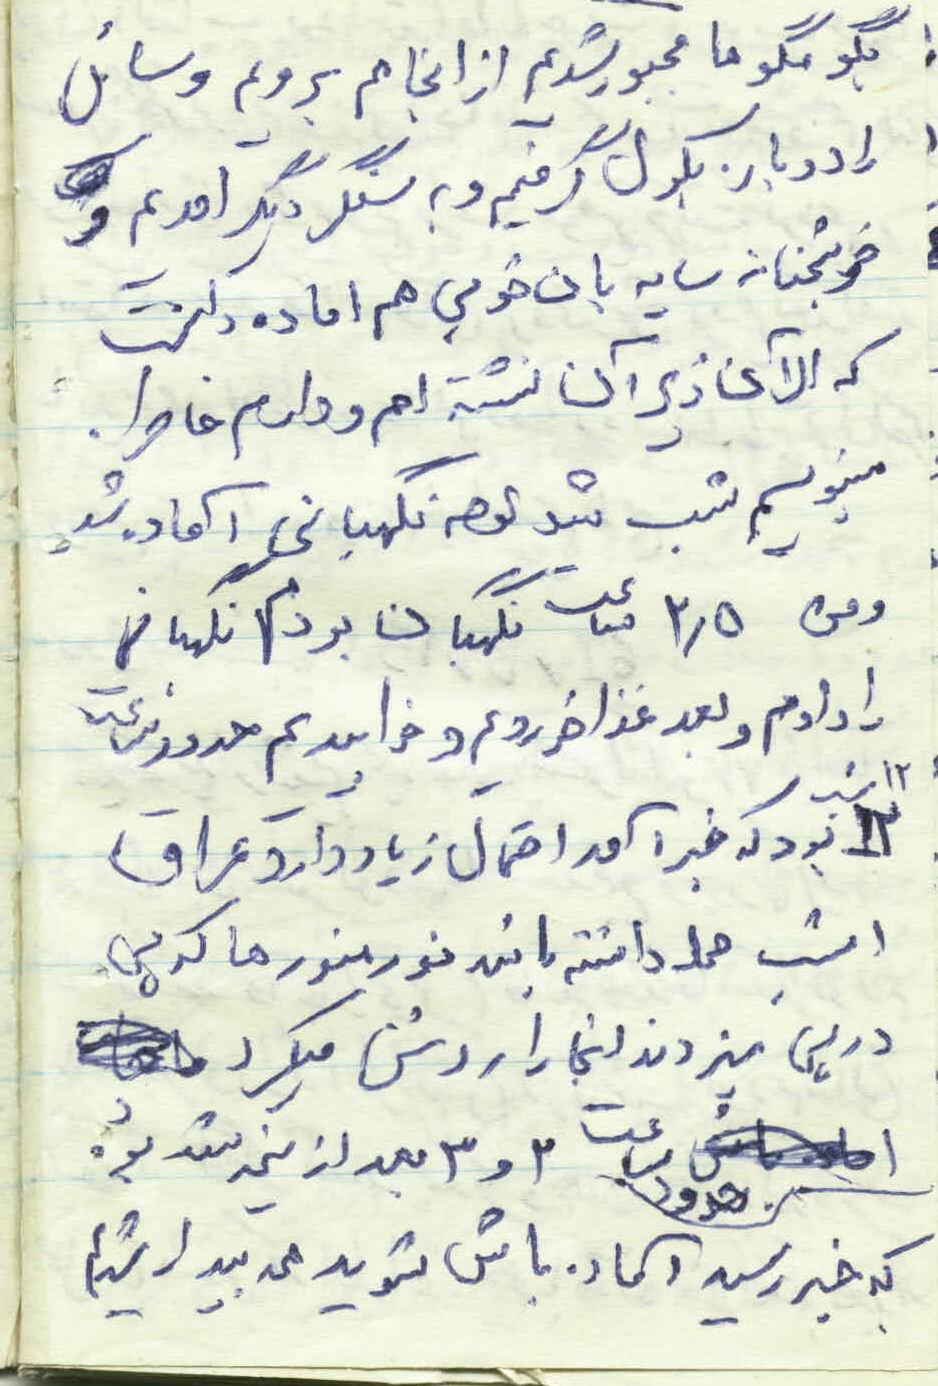 بگو مگو ما مجبور شدیم از انجا هم برویم وسائل
را دوباره بکول گرفتیم و به سنگر دیگر امدیم و
خوشبختانه سایه بان خوبی هم اماده داشت
که الآن زیر آن نشسته ام و دارم خاطرا
مینویسم شب شد لوحه نگهبانی آماده شد
ومن ۳/۵ ساعت نگهبان بودم نگهبانی
را دادم و بعد غذا خوردیم و خوابیدیم حدود ساعت
۱۲ شب بود که خبر آمد احتمال زیاد دارد عراق
امشب حمله داشته باشد منورها که پی
در پی میزدند اینجا را روشن میکرد
حدود ساعت ۲ و ۳ بعد از نیمه شب بود
که خبر رسید آماده باش شوید همه بیدار شدیم